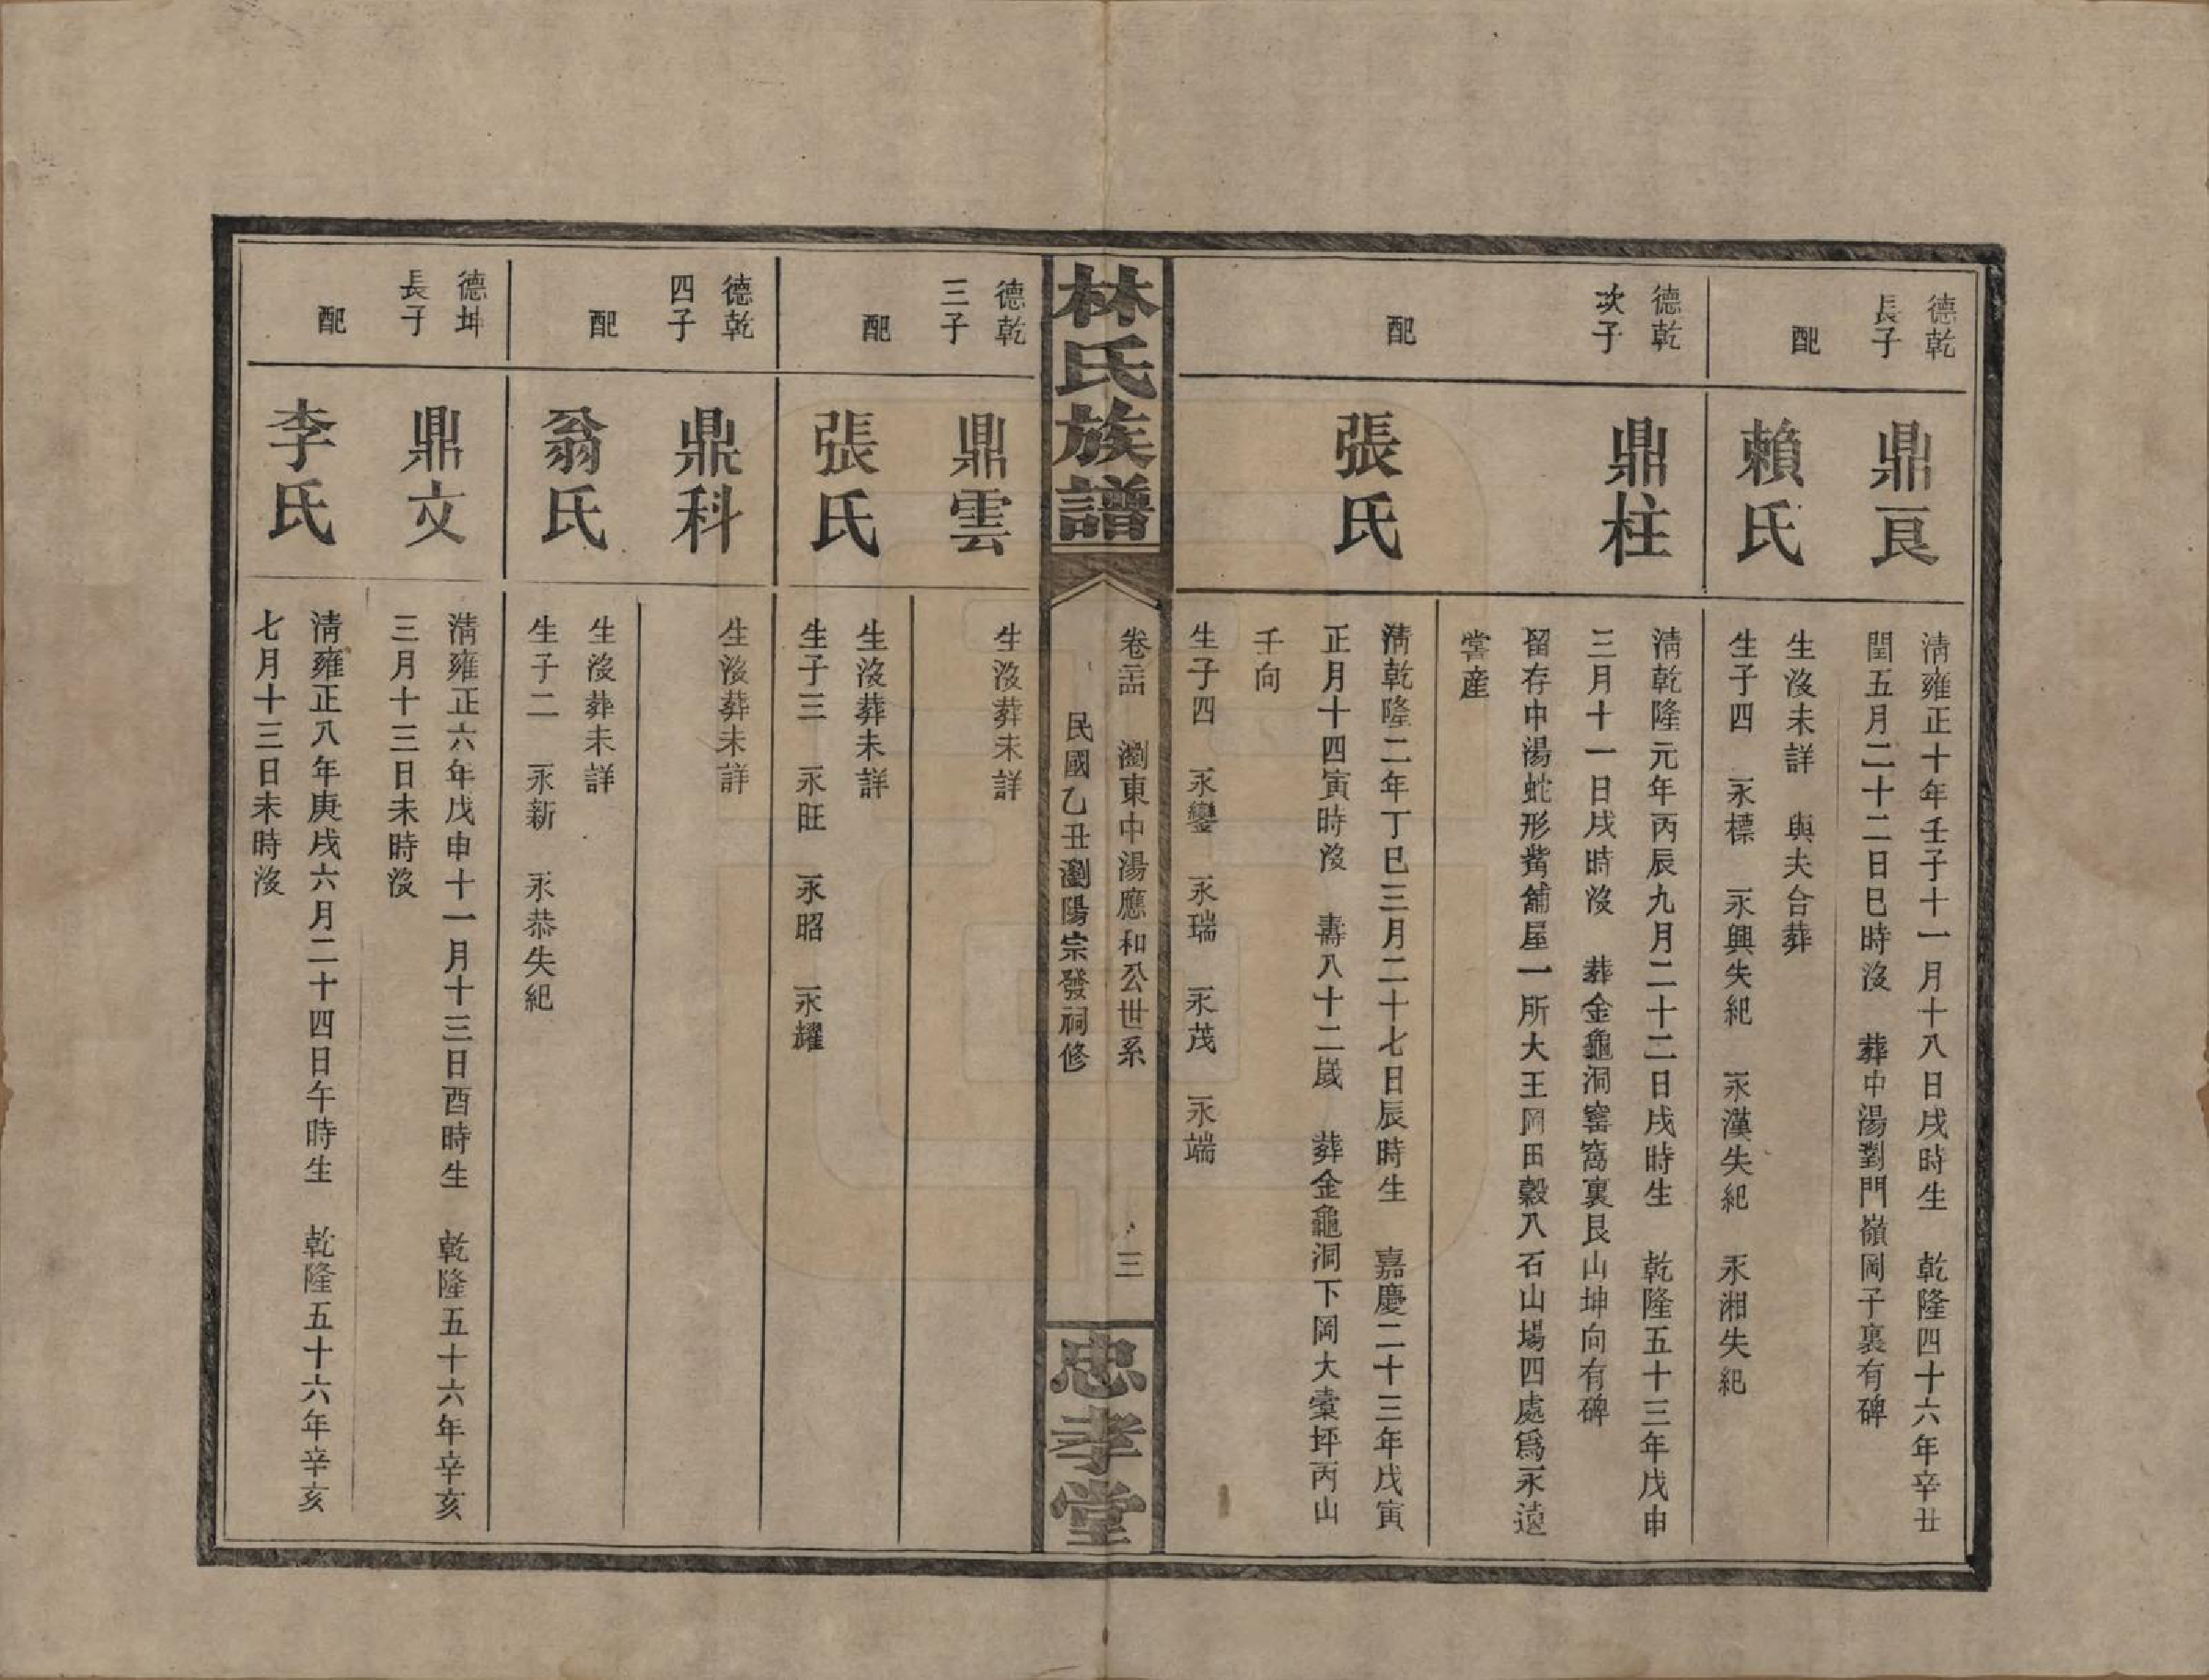 德乾
長子
鼎良
清雍正十年壬子十一月十八日戌時生　乾隆四十六年辛丑
閏五月二十二日巳時沒　葬中湯對門嶺岡子裏有碑
配
賴氏
生沒未詳　與夫合葬
生子四　永標　永興失紀　永漢失紀　永湘失紀
德乾
次子
鼎柱
清乾隆元年丙辰九月二十二日戌時生　乾隆五十三年戊申
三月十一日戌時沒　葬金龜洞窰窩裏艮山坤向有碑
留存中湯蛇形觜舖屋一所大王岡田穀八石山場四處爲永遠
嘗産
配
張氏
清乾隆二年丁巳三月二十七日辰時生　嘉慶二十三年戊寅
正月十四寅時沒　壽八十二歲　葬金龜洞下岡大棗坪丙山
壬向
生子四　永鑾　永瑞　永茂　永端
林氏族譜
卷三四　瀏東中湯應和公世系
民國乙丑瀏陽宗發祠修
三
忠孝堂
德乾
三子
鼎雲
生沒葬未詳
配
張氏
生沒葬未詳
生子三　永旺　永昭　永耀
德乾
四子
鼎科
生沒葬未詳
配
翁氏
生沒葬未詳
生子二　永新　永恭失紀
德坤
長子
鼎文
清雍正六年戊申十一月十三日酉時生　乾隆五十六年辛亥
三月十三日未時沒
配
李氏
清雍正八年庚戌六月二十四日午時生　乾隆五十六年辛亥
七月十三日未時沒